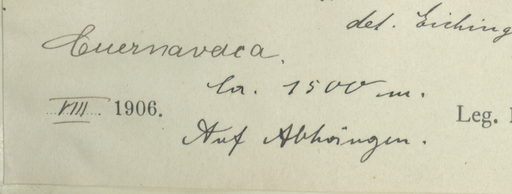 det. Eiching
Cuernavaca.
ca. 1500 m.
VIII 1906.
Leg.
Auf Abhängen.